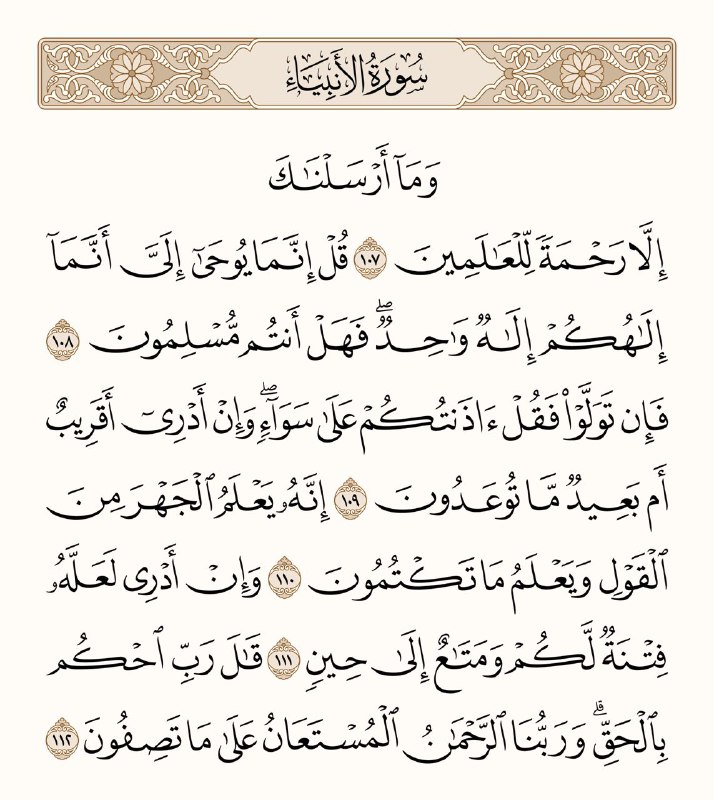 سُورَةُ الأَنبِيَاءِ
وَمَآ أَرۡسَلۡنَٰكَ
إِلَّا رَحۡمَةٗ لِّلۡعَٰلَمِينَ ١٠٧ قُلۡ إِنَّمَا يُوحَىٰٓ إِلَيَّ أَنَّمَآ
إِلَٰهُكُمۡ إِلَٰهٞ وَٰحِدٞۖ فَهَلۡ أَنتُم مُّسۡلِمُونَ ١٠٨
فَإِن تَوَلَّوۡاْ فَقُلۡ ءَاذَنتُكُمۡ عَلَىٰ سَوَآءٖۖ وَإِنۡ أَدۡرِيٓ أَقَرِيبٌ
أَم بَعِيدٞ مَّا تُوعَدُونَ ١٠٩ إِنَّهُۥ يَعۡلَمُ ٱلۡجَهۡرَ مِنَ
ٱلۡقَوۡلِ وَيَعۡلَمُ مَا تَكۡتُمُونَ ١١٠ وَإِنۡ أَدۡرِي لَعَلَّهُۥ
فِتۡنَةٞ لَّكُمۡ وَمَتَٰعٌ إِلَىٰ حِينٖ ١١١ قَٰلَ رَبِّ ٱحۡكُم
بِٱلۡحَقِّۗ وَرَبُّنَا ٱلرَّحۡمَٰنُ ٱلۡمُسۡتَعَانُ عَلَىٰ مَا تَصِفُونَ ١١٢